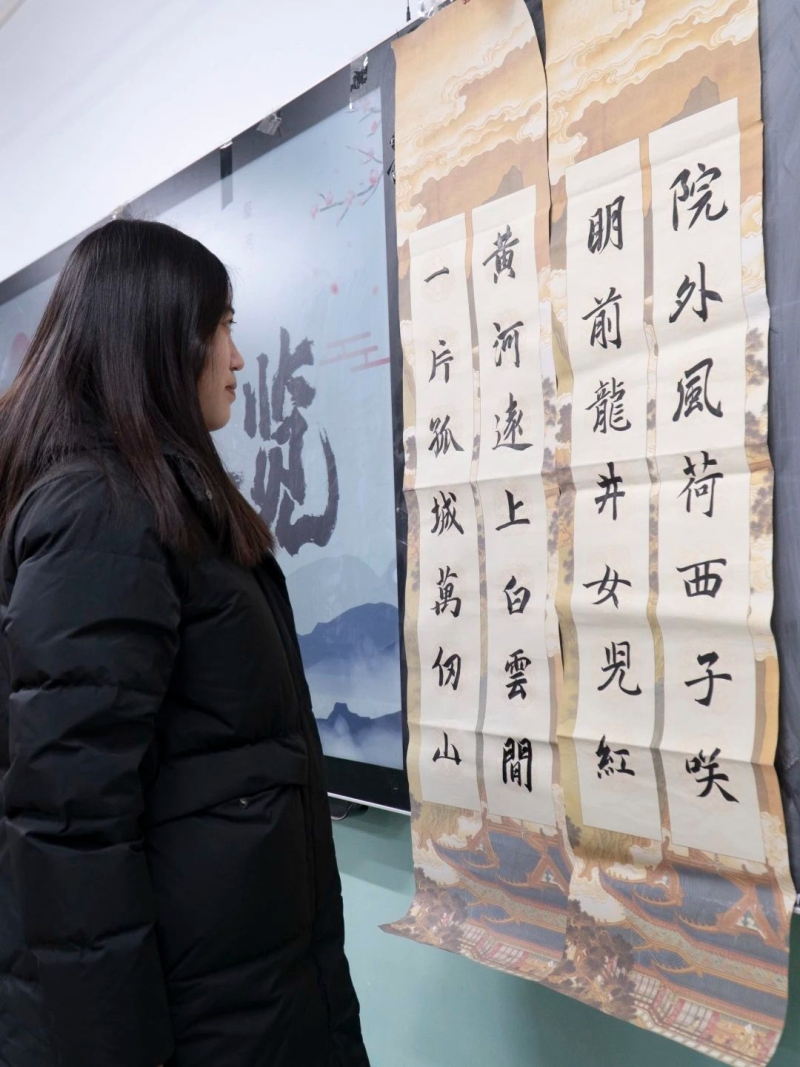 院外風荷西子咲
明前龍井女児紅
黄河遠上白雲間
一片孤城萬仞山
览